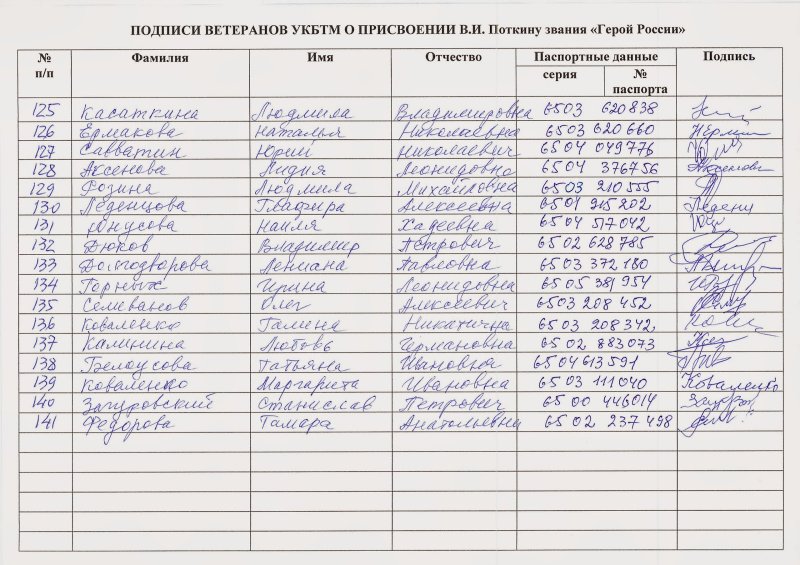 ПОДПИСИ ВЕТЕРАНОВ УКБТМ О ПРИСВОЕНИИ В.И. Поткину звания «Герой России»
№ п/п Фамилия Имя Отчество Паспортные данные Подпись
серия № паспорта
125 Касаткина Людмила Владимировна 6503 620838
126 Ермакова Наталья Николаевна 6503 620660
127 Савватин Юрий Николаевич 6504 049776
128 Аксенова Лидия Леонидовна 6504 376756
129 Фозина Людмила Михайловна 6503 210555
130 Леденцова Глафира Алексеевна 6501 915202
131 Юнусова Наиля Хадеевна 6504 517042
132 Дюков Владимир Петрович 6502 628785
133 Долгодворова Лениана Павловна 6503 372180
134 Горных Ирина Леонидовна 6505 381954
135 Олег Алексеевич 6503 208452
136 Коваленко Галина Никитична 6503 208342
137 Калинина Любовь Германовна 6502 883073
138 Белоусова Татьяна Ивановна 6504 613591
139 Коваленко Маргарита Ивановна 6503 111040 Коваленко
140 Загуровский Станислав Петрович 6500 446014
141 Федорова Тамара Анатольевна 6502 237498